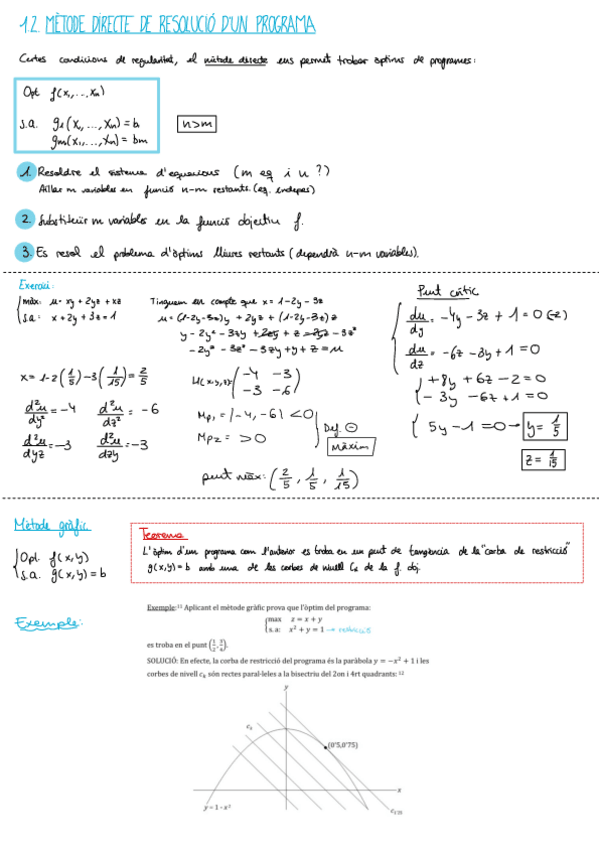 1.2. MÈTODE DIRECTE DE RESOLUCIÓ D'UN PROGRAMA
Certes condicions de regularitat, el mètode directe ens permet trobar òptims de programes:
Opt f(x₁,...,xₙ)
s.a. g₁(x₁,...,xₙ) = b₁
gm(x₁,...,xₙ) = bm
n>m
1. Resoldre el sistema d'equacions (m eq i n ?)
Aïllar m variables en funció n-m restants. (eq. indepes)
2. Substituïr m variables en la funció objectiu f.
3. Es resol el problema d'òptims lliures restants (dependrà n-m variables).
Exercici:
màx: u = xy + 2yz + xz
s.a: x + 2y + 3z = 1
Tinguem en compte que x = 1-2y-3z
u = (1-2y-3z)y + 2yz + (1-2y-3z)z
y - 2y² - 3zy + 2zy + z - 2yz - 3z²
-2y² - 3z² - 3zy + y + z = u
Punt crític
du/dy = -4y - 3z + 1 = 0 (-2)
du/dz = -6z - 3y + 1 = 0
+8y + 6z - 2 = 0
-3y - 6z + 1 = 0
5y - 1 = 0 → y = 1/5
z = 1/15
x = 1-2(1/5)-3(1/15) = 2/5
d²u/dy² = -4 d²u/dz² = -6
d²u/dyz = -3 d²u/dzy = -3
H(x,y,z) (-4 -3
-3 -6)
Mp₁ = |-4, -6| < 0
Mp₂ = > 0
Def. ⊖
Màxim
punt màx: (2/5, 1/5, 1/15)
Mètode gràfic
Opt. f(x,y)
s.a. g(x,y) = b
Teorema
L'òptim d'un programa com l'anterior es troba en un punt de tangència de la "corba de restricció"
g(x,y) = b amb una de les corbes de nivell Cₖ de la f. obj.
Exemple:
Exemple:¹¹ Aplicant el mètode gràfic prova que l'òptim del programa:
max z = x + y
s.a: x² + y = 1 → restricció
es troba en el punt (1/2, 3/4).
SOLUCIÓ: En efecte, la corba de restricció del programa és la paràbola y = −x² + 1 i les
corbes de nivell cₖ són rectes paral·leles a la bisectriu del 2on i 4rt quadrants: ¹²
y
cₖ
(0'5,0'75)
x
y = 1 - x²